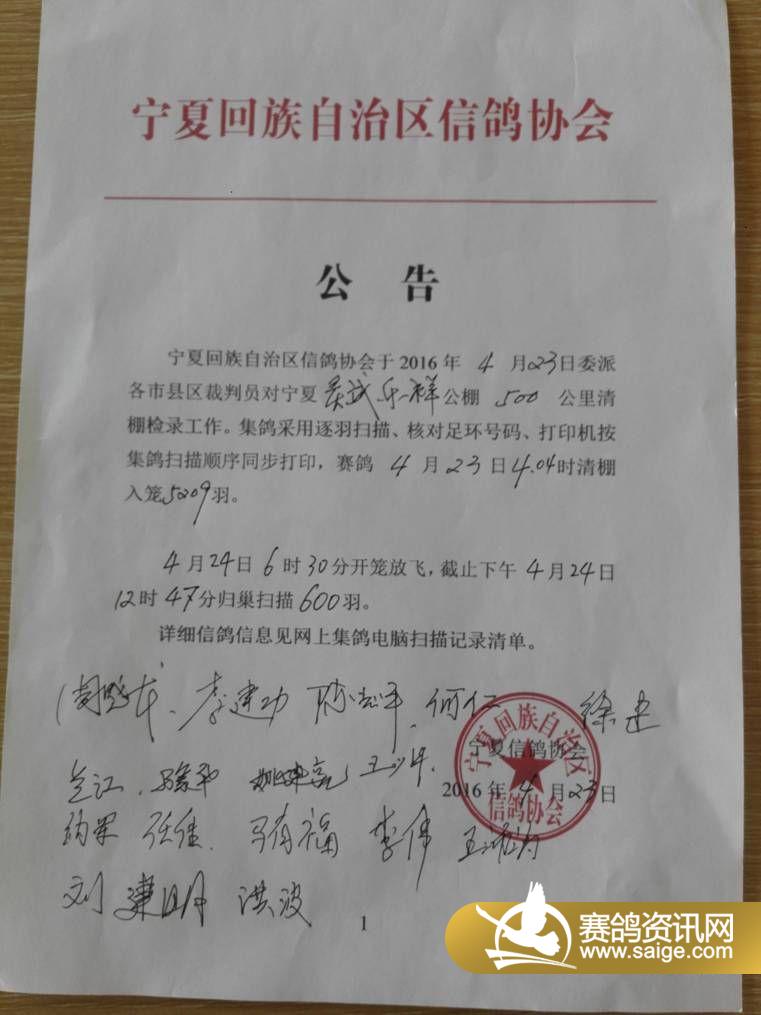 宁夏回族自治区信鸽协会
公 告
宁夏回族自治区信鸽协会于 2016 年 4 月23日委派
各市县区裁判员对宁夏 公棚 500 公里清
棚检录工作。集鸽采用逐羽扫描、核对足环号码、打印机按
集鸽扫描顺序同步打印，赛鸽 4 月 23 日4.04时清棚
入笼5209羽。
4月24日 6 时 30分开笼放飞，截止下午 4月24日
12时 47分归巢扫描 600羽。
详细信鸽信息见网上集鸽电脑扫描记录清单。
李建功 何仁 徐建
宁夏回族自治区
宁夏信鸽协会
2016 年 4 月 23 日
信鸽协会
任佳 马有福 李伟
刘 洪波
1
赛鸽资讯网
www.saige.com